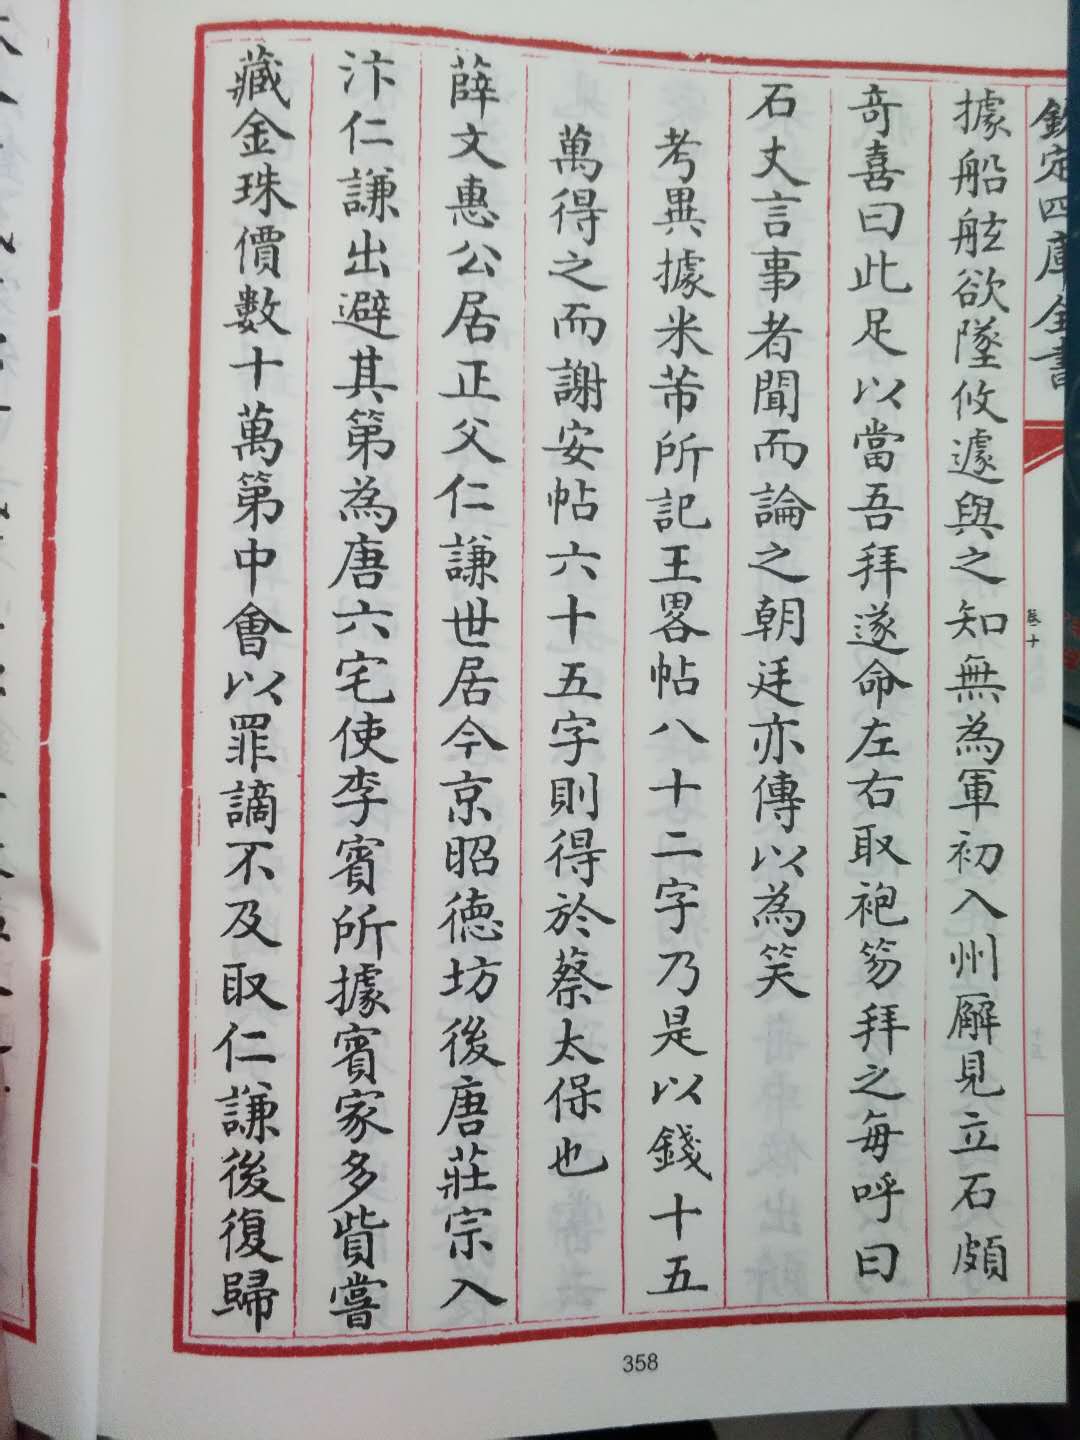 欽定四庫全書
卷十
據船舷欲墜攸遽與之知無為軍初入州廨見立石頗
奇喜曰此足以當吾拜遂命左右取袍笏拜之每呼曰
石丈言事者聞而論之朝廷亦傳以為笑
考異據米芾所記王畧帖八十二字乃是以錢十五
萬得之而謝安帖六十五字則得於蔡太保也
薛文惠公居正父仁謙世居今京昭德坊後唐莊宗入
汴仁謙出避其第為唐六宅使李賓所據賓家多貲嘗
藏金珠價數十萬第中會以罪謫不及取仁謙後復歸
358